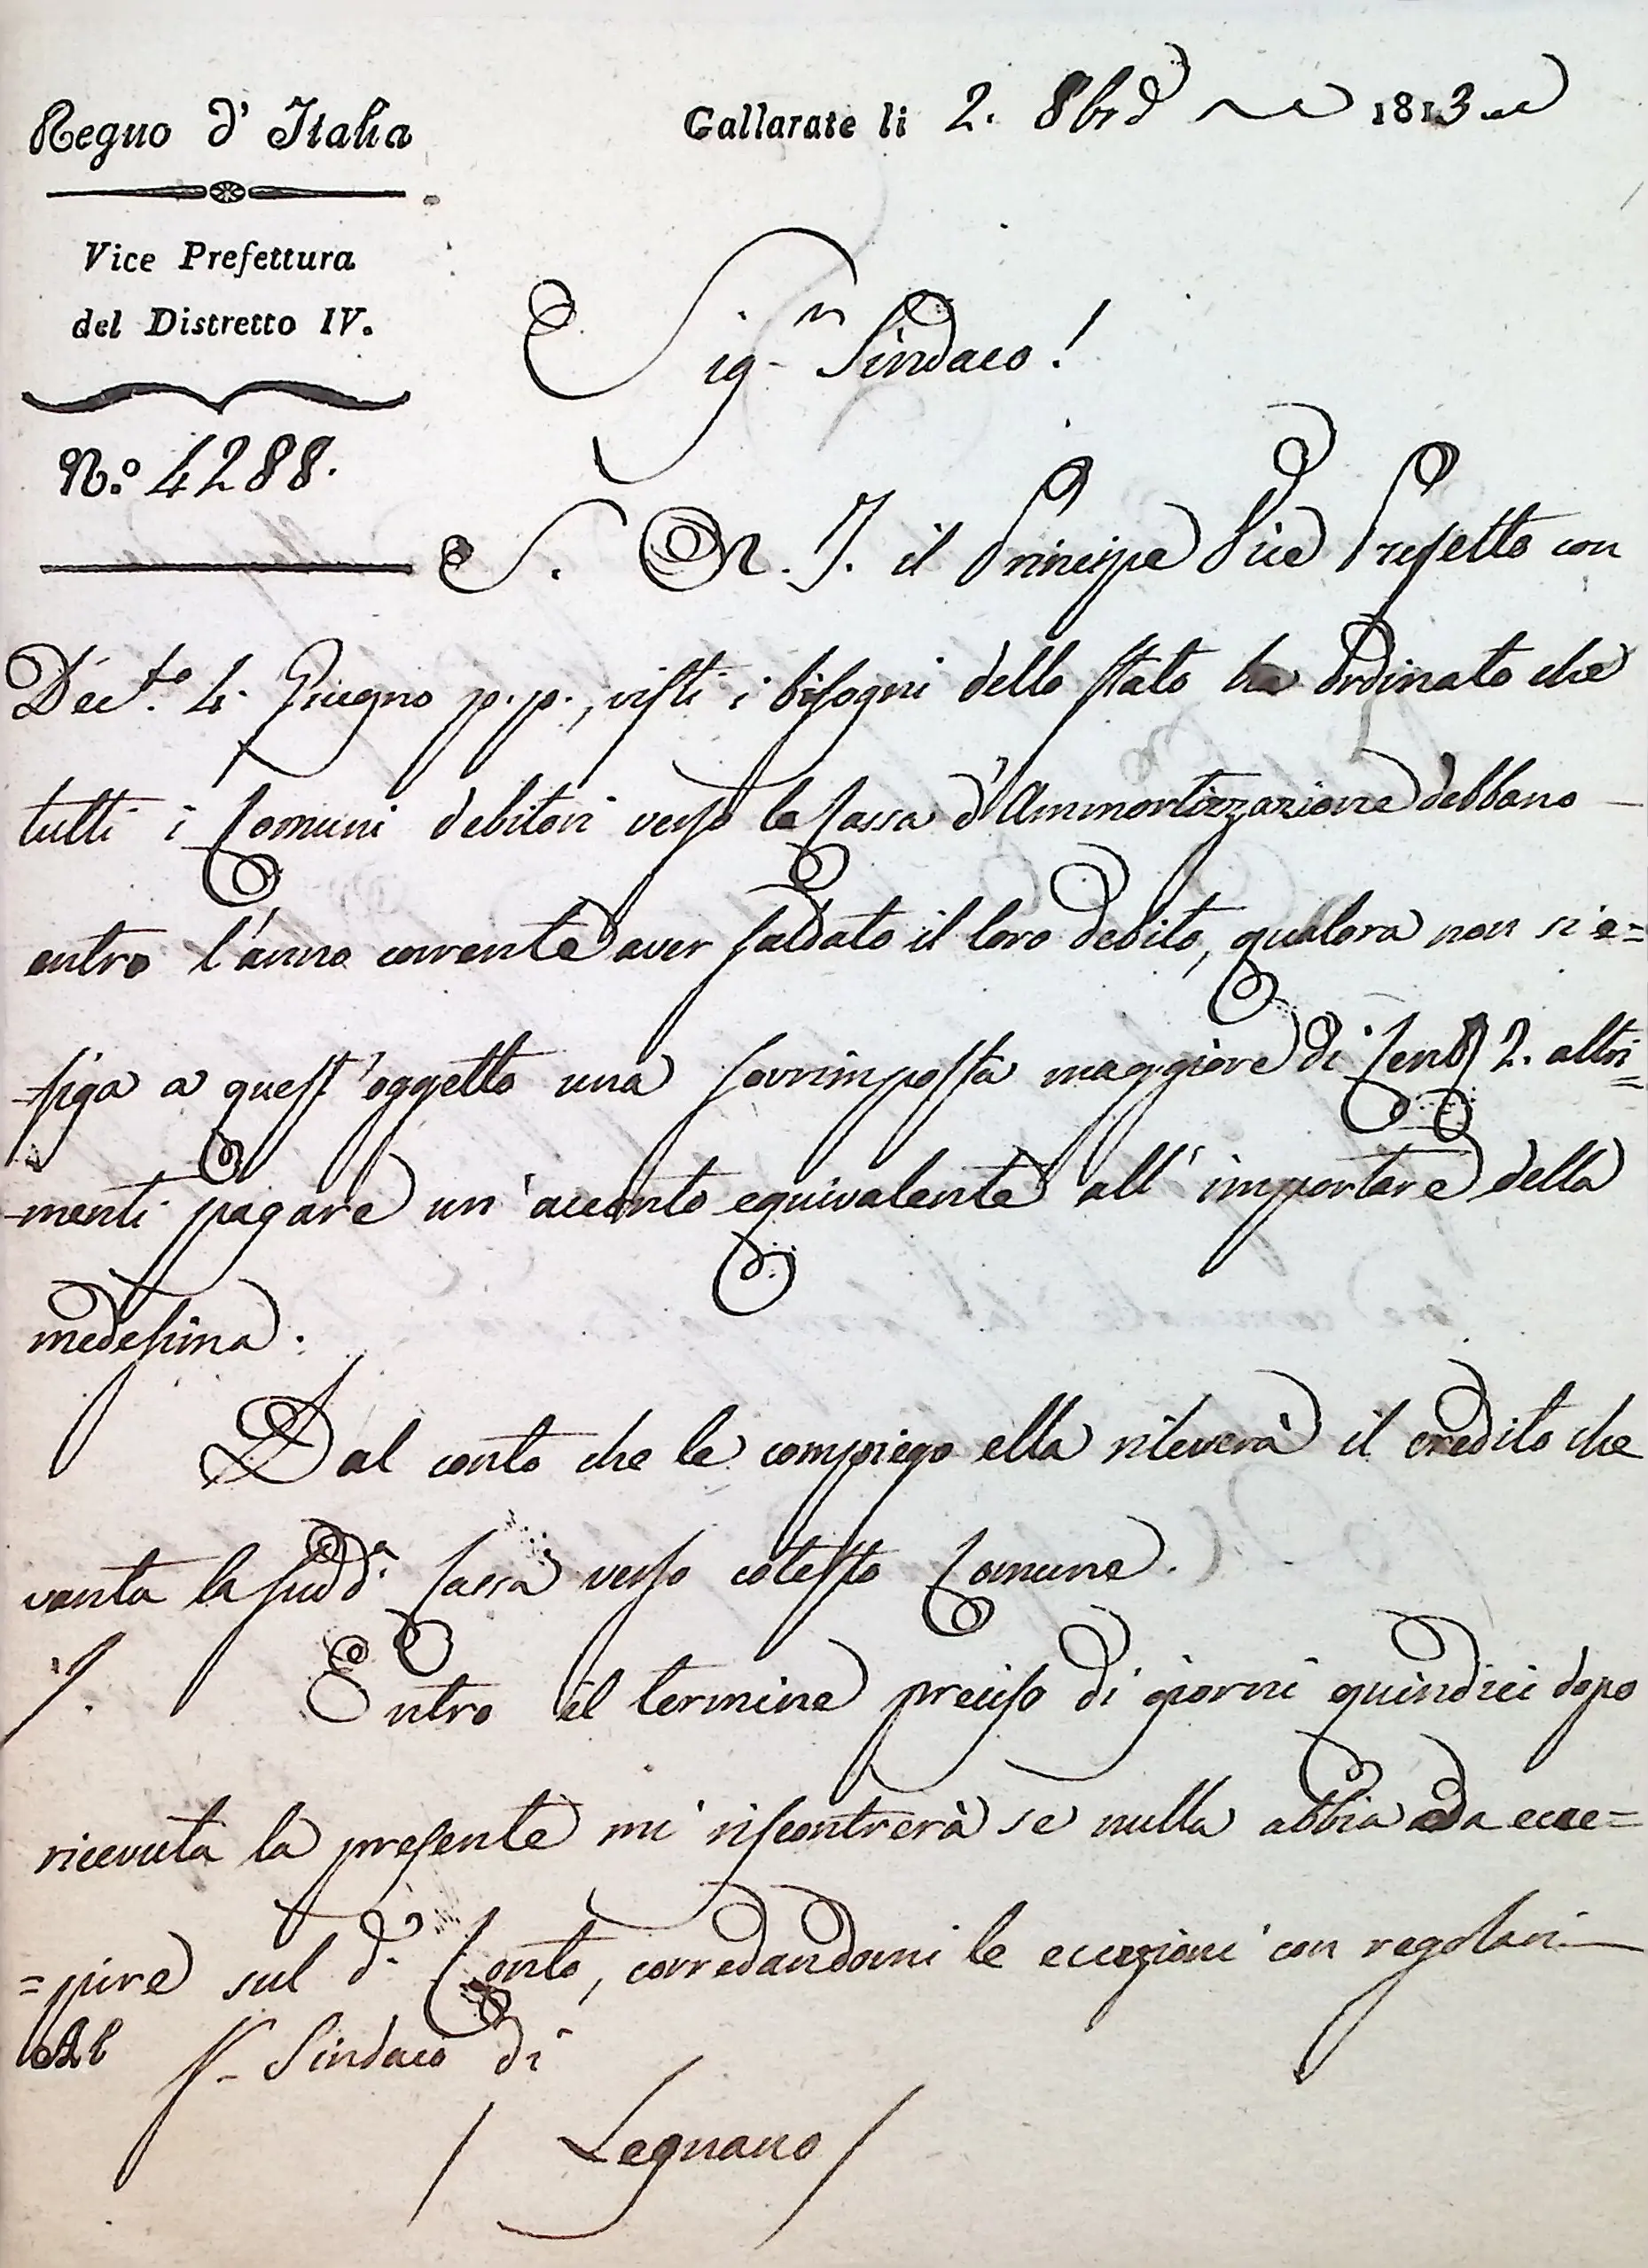 Regno d' Italia
Gallarate li 2. 8brê 1813
Vice Prefettura
del Distretto IV.
N.º 4288.
Sig.r Sindaco!
S. A. I. il Principe Vice Prefetto con
Decr.to 4. Giugno p. p., visti i bisogni dello stato ha ordinato che
tutti i Comuni debitori verso la Cassa d'Ammortizzazione debbano
entro l'anno corrente aver saldato il loro debito, qualora non si e=
siga a quest'oggetto una sovrimposta maggiore di Cent. 2. altri=
menti pagare un'acconto equivalente all'importare della
medesima.
Dal conto che le compiego ella rileverà il credito che
vanta la sudd.a Cassa verso cotesto Comune.
Entro il termine preciso di giorni quindici dopo
ricevuta la presente mi riscontrerà se nulla abbia da ecce=
=pire sul d.o Conto, corredandomi le eccezioni con regolari
Al S.r Sindaco di
Legnano